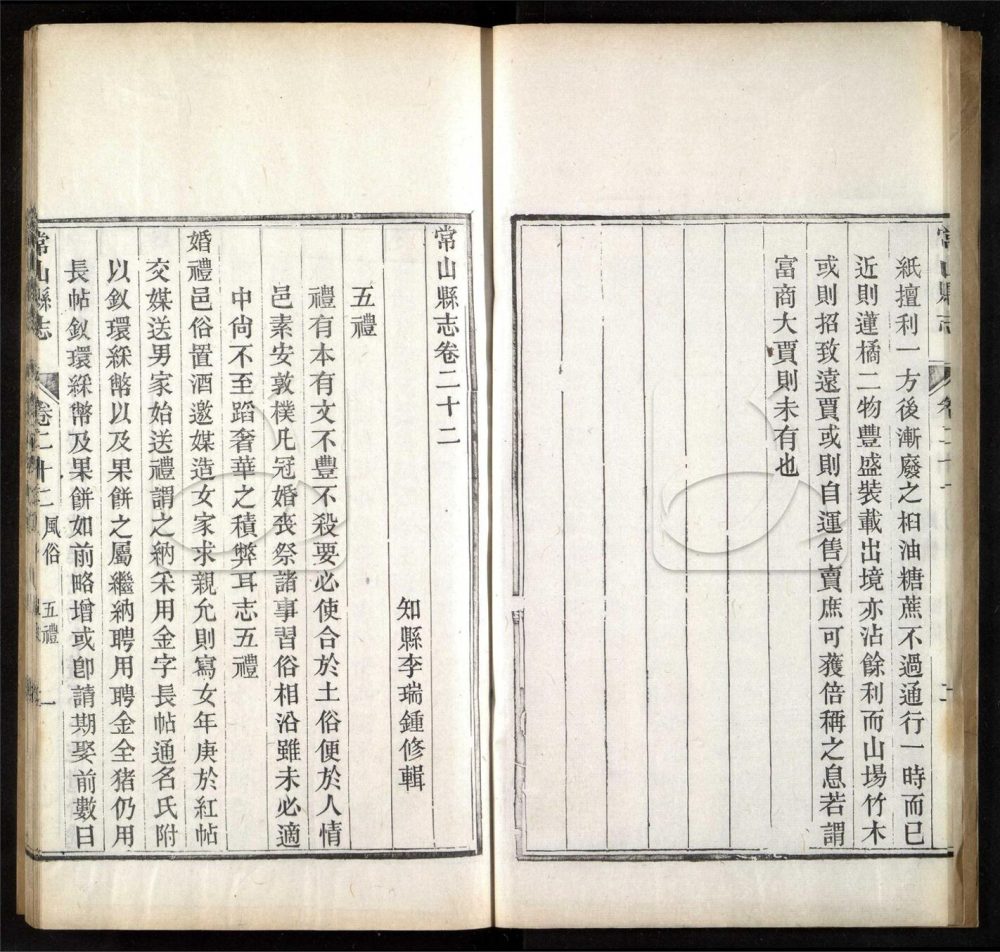 常山縣志
紙擅利一方後漸廢之桕油糖蔗不過通行一時而已
近則蓮橘二物豐盛裝載出境亦沾餘利而山場竹木
或則招致遠賈或則自運售賣庶可獲倍稱之息若謂
富商大賈則未有也
常山縣志卷二十二
知縣李瑞鍾修輯
五禮
禮有本有文不豐不殺要必使合於土俗便於人情
邑素安敦樸凡冠婚喪祭諸事習俗相沿雖未必適
中尙不至蹈奢華之積弊耳志五禮
婚禮邑俗置酒邀媒造女家求親允則寫女年庚於紅帖
交媒送男家始送禮謂之納采用金字長帖通名氏附
以釵環綵幣以及果餅之屬繼納聘用聘金全猪仍用
長帖釵環綵幣及果餅如前略增或卽請期娶前數日
常山縣志 卷二十二 風俗 五禮 一